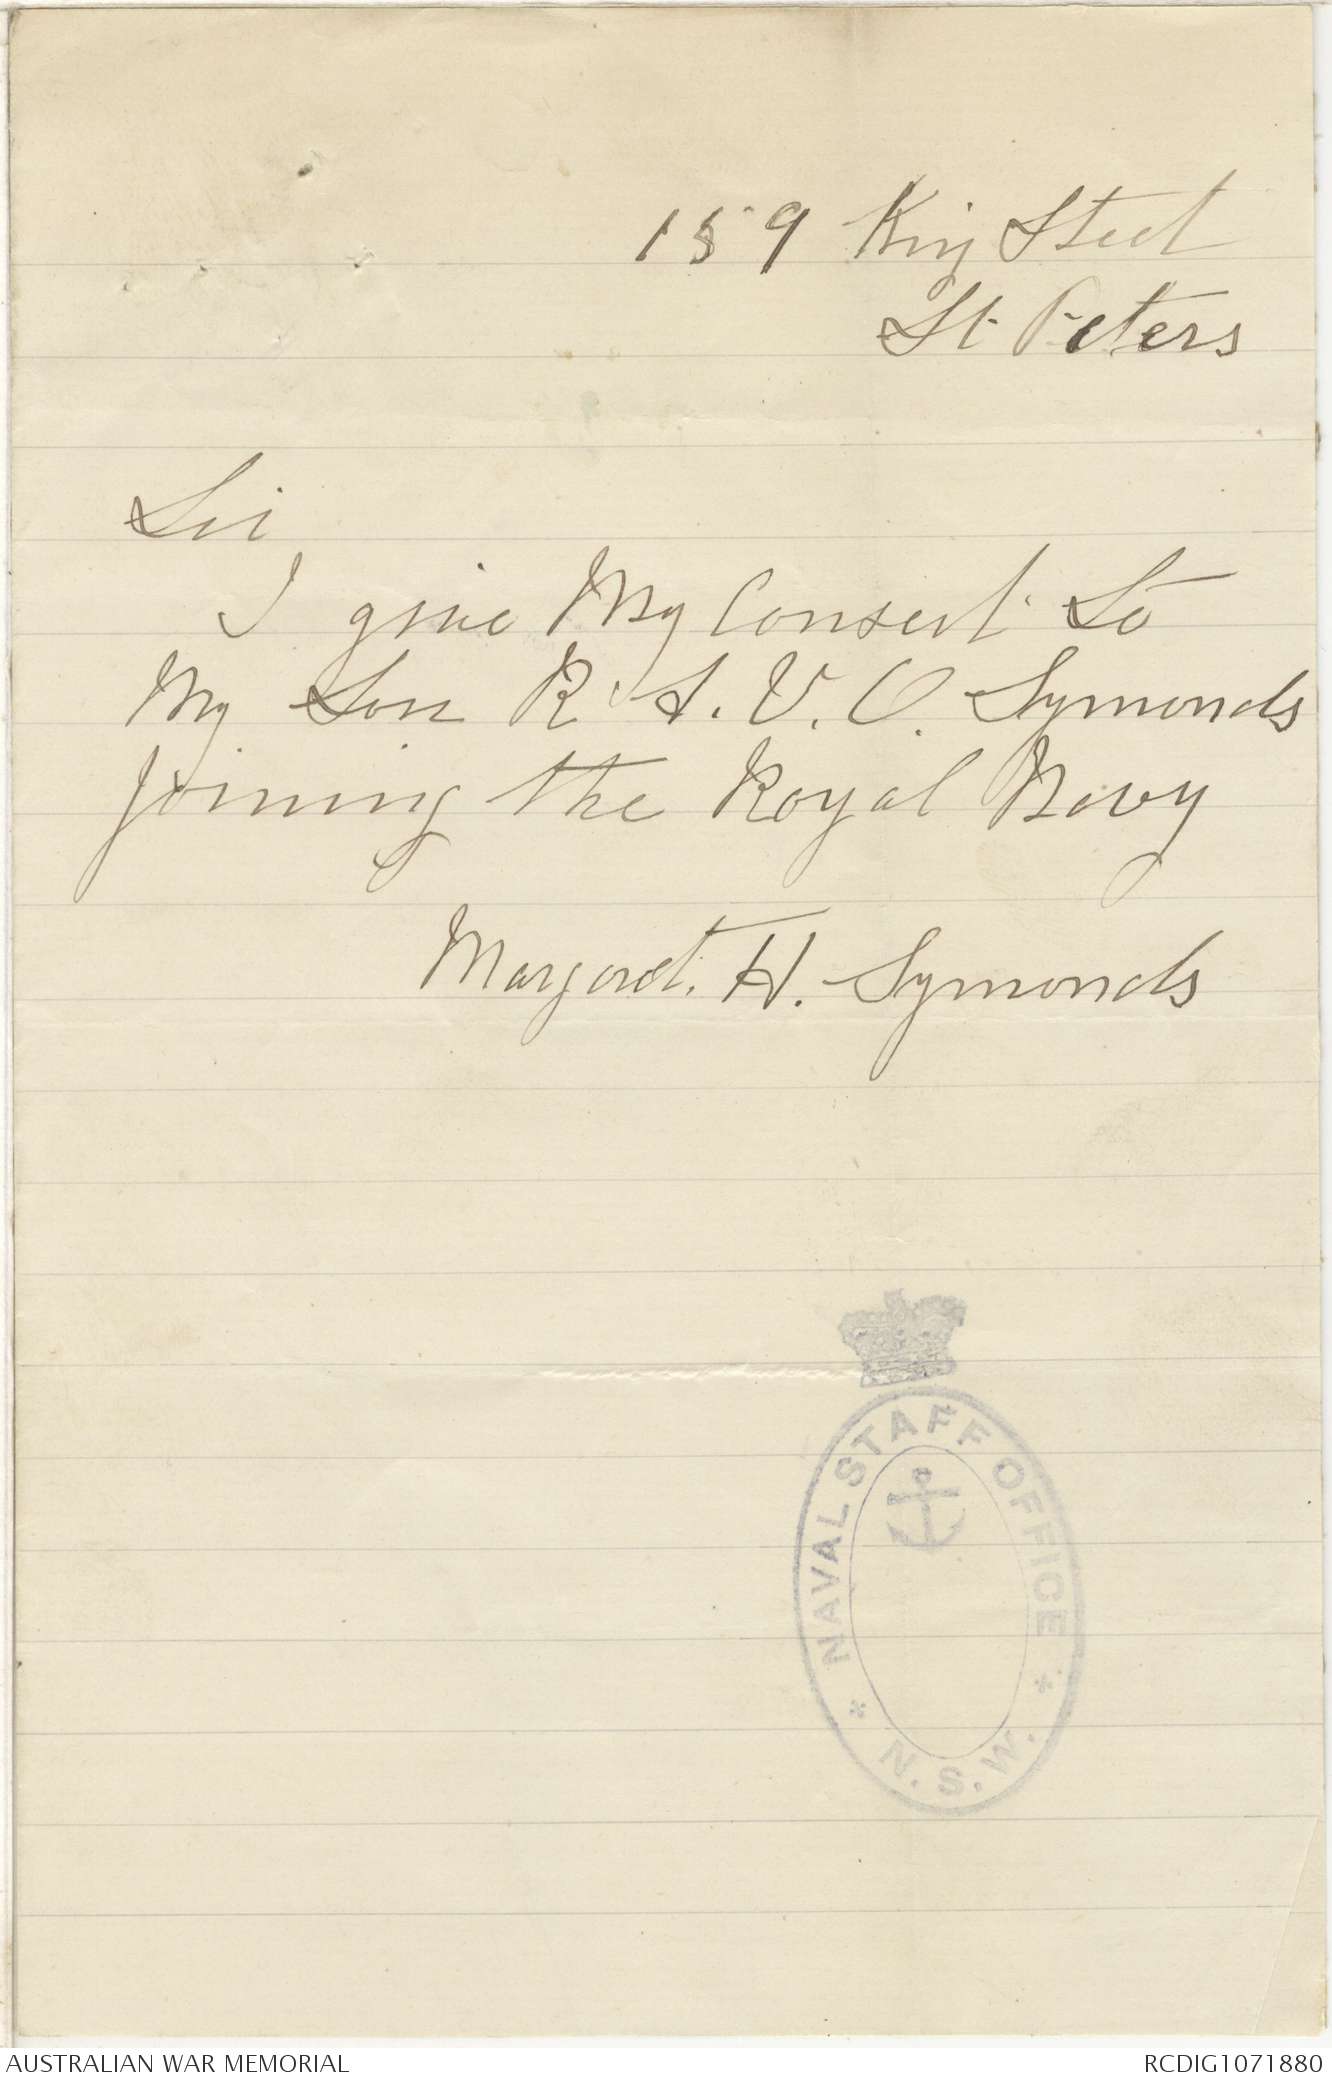 159 King Street
St. Peters
Sir
I give My Consent to
My Son R. A. V. O. Symonds
joining the Royal Navy
Margaret. H. Symonds
NAVAL STAFF OFFICE
* N. S. W. *
AUSTRALIAN WAR MEMORIAL
RCDIG1071880